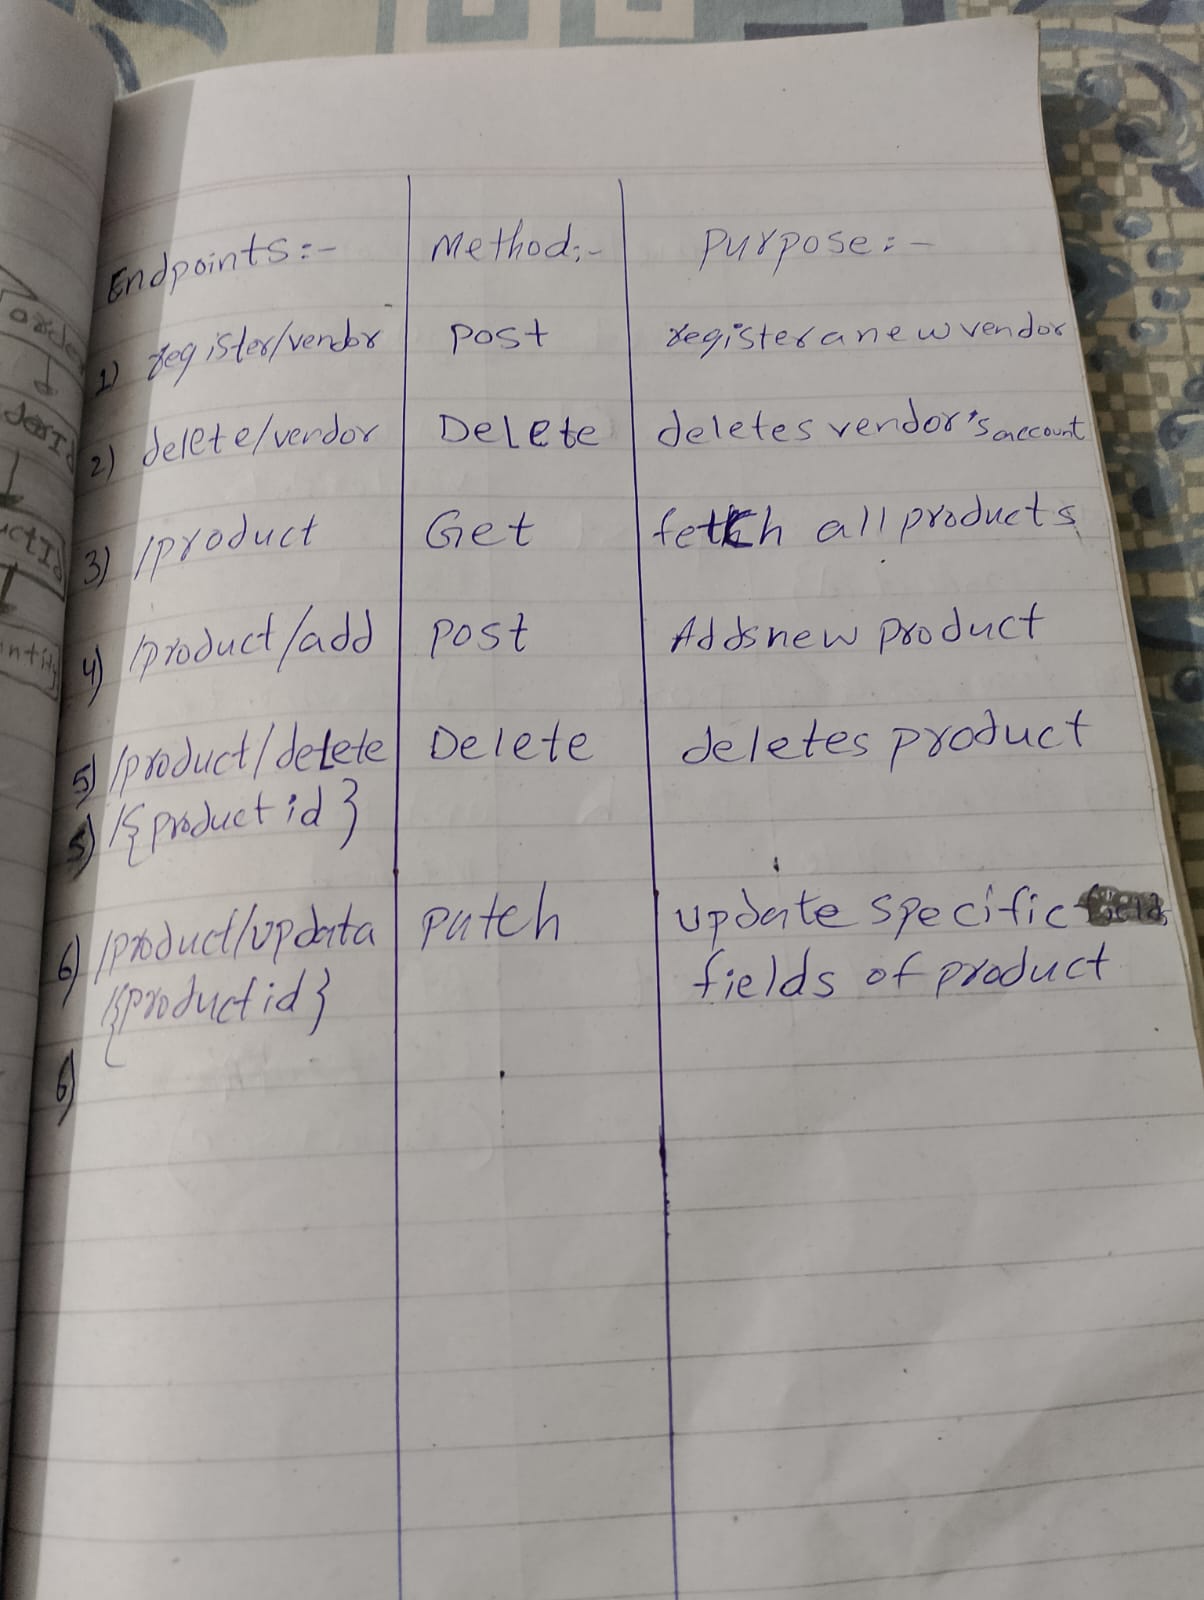 Endpoints:- Method:- Purpose:-
1) register/vendor Post register a new vendor
2) delete/vendor Delete deletes vendor's account
3) /product Get fetch all products
4) /product/add Post Adds new product
5) /product/delete Delete deletes product
5) /{product id}
6) /product/updata Patch update specific
/{product id} fields of product
6)
order